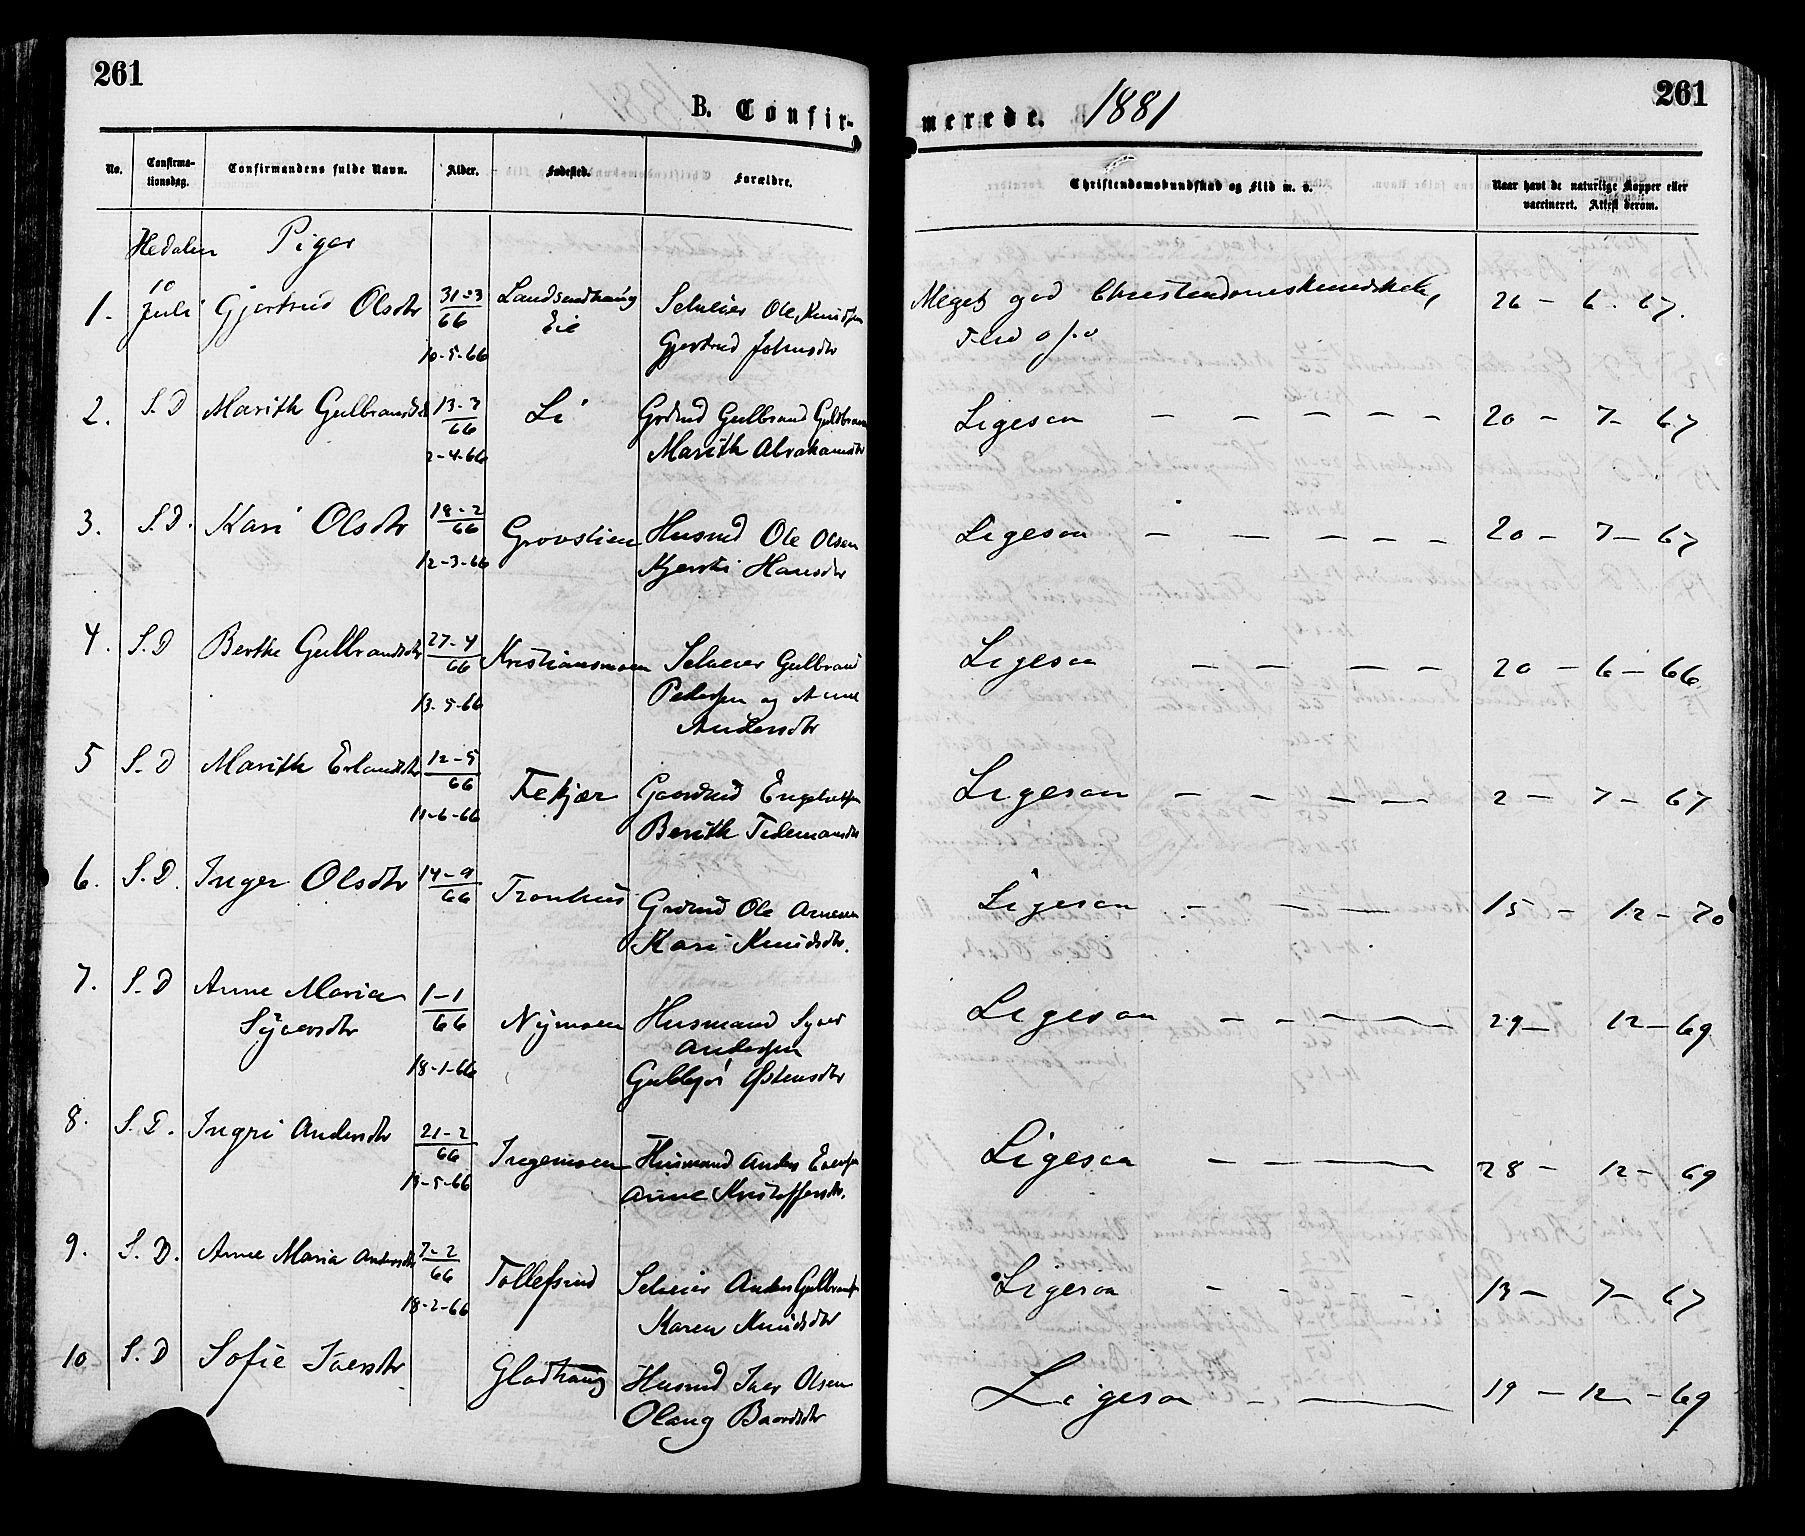 261
B. Confir-
merede. 1881
261
No. Confirma-tionsdag. Confirmandens fulde Navn. Alder. Fødested. Forældre. Christendomskundskab og Flid m. v. Naar havt de naturlige Kopper eller vaccineret. Attest derom.
Hedalen Piger
1. 10 Juli Gjertrud Olsdtr 31-3 66 Landsendhaug Eie Selveier Ole Knudsen Meget god Christendomskundskab, 26 - 6 - 67.
10-5-66 Gjertrud Johnsdtr Flid o.s.v
2. S. D Marith Gulbrandsdtr 13-3 66 Li Grdmd Gulbrand Guldbrandsen Ligesaa — — — — — 20 - 7 - 67
2-4-66 Marith Abrahamsdtr
3. S. D. Kari Olsdtr 18-2 66 Grovstien Husmd Ole Olsen Ligesaa — — — — — 20 - 7 - 67
12-3-66 Kjersti Hansdtr
4. S. D Berthe Gulbrandsdtr 27-4 66 Kristiansmoen Selveier Gulbrand Ligesaa — — — — 20 - 6 - 66
13-5-66 Pedersen og Anne
Andersdtr
5 S. D Marith Erlandsdtr 12-5 66 Fekjær Gaardmd Engebretsen Ligesaa — — — — 2 - 7 - 67
11-6-66 Berith Tidemansdtr
6. S. D. Inger Olsdtr 14-9 66 Tronhus Grdmd Ole Arnesen Ligesaa - — — 15 - 12 - 70
Kari Knudsdtr.
7. S. D Anne Maria 1-1 66 Nymoen Husmand Syver Ligesaa - - — — 29 - 12 - 69
Syversdtr Andersen
18-1-66 Gulbjør Østensdtr
8. S. D. Ingri Andersdtr 21-2 66 Ingemoen Husmand Anders Eversen Ligesaa — — — 28 - 12 - 69
13-5-66 Anne Kristoffersdtr.
9. S. D. Anne Maria Andersdtr 7-2 66 Tollefsrud Selveier Anders Gulbrands Ligesaa - - - - 13 - 7 - 67
18-2-66 Karen Knudsdtr
10 S. D Sofie Iversdtr Gladhaug Husmd Iver Olsen Ligesaa - — 19 - 12 - 69
Olaug Baardsdtr